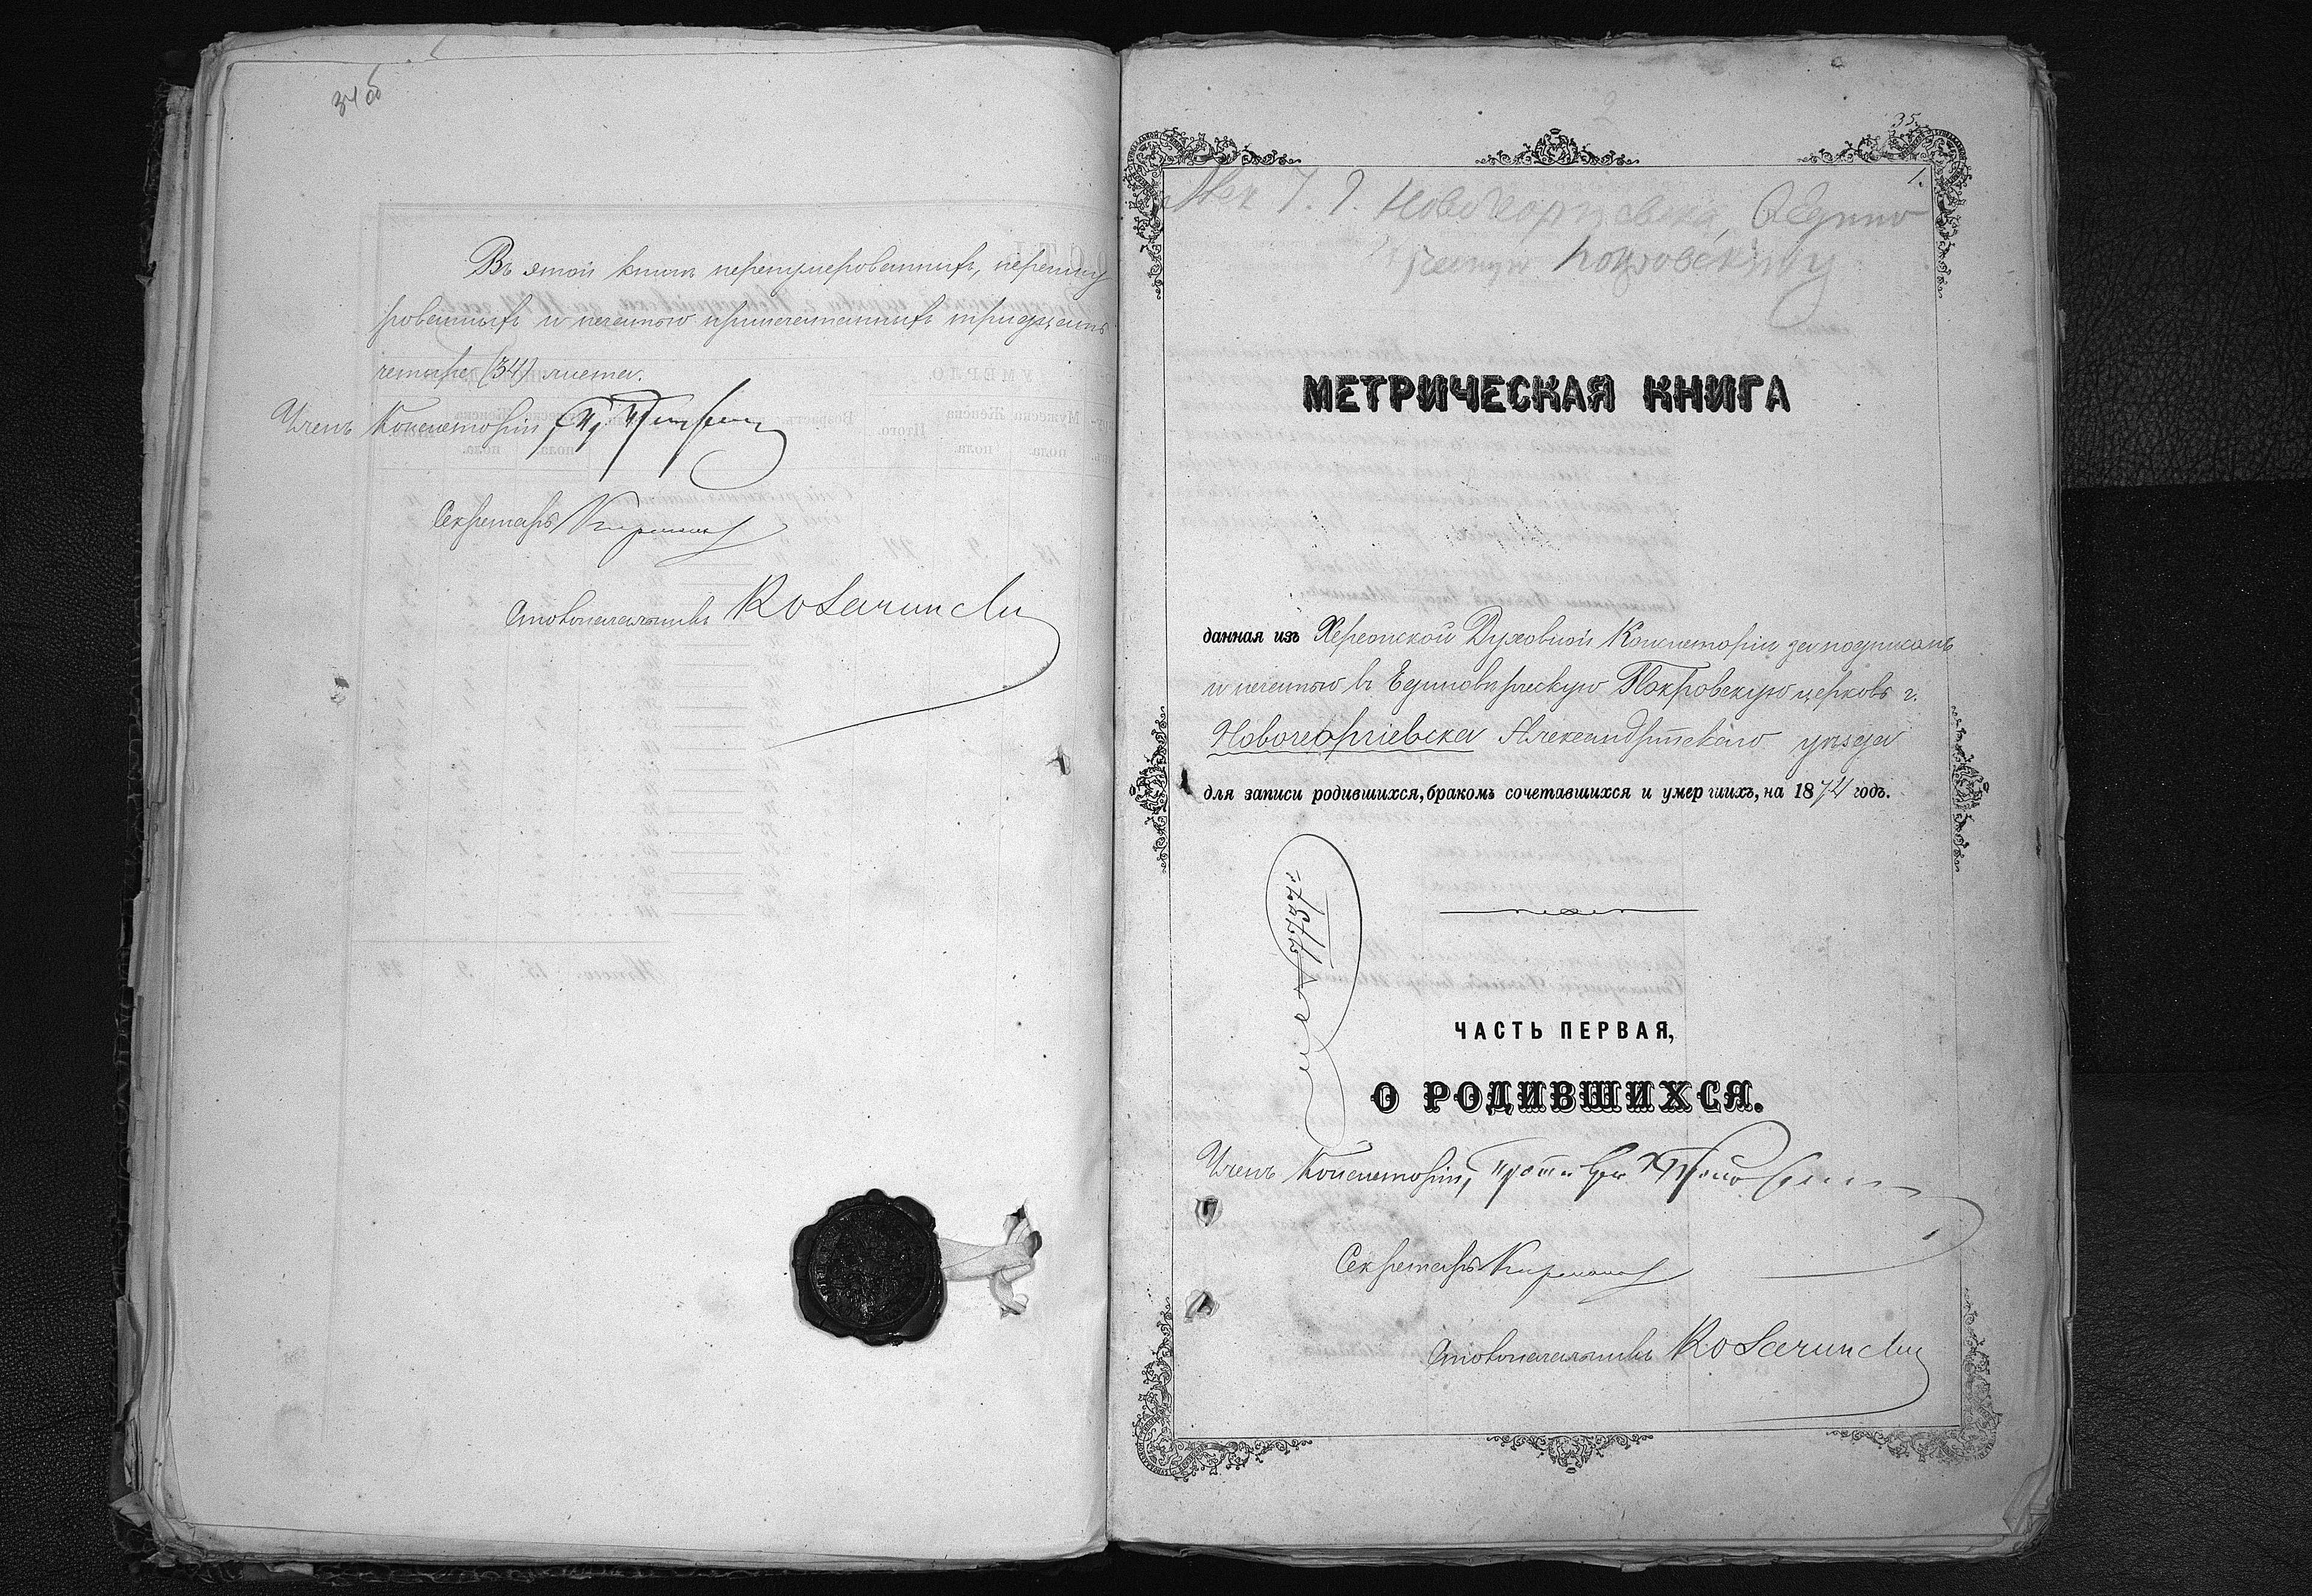 34об
Въ этой книгѣ перенумерованныхъ, перешну
рованныхъ и печатью припечатанныхъ тридцать
четыре (34) листа.
Членъ Консисторіи
Секретарь
Столоначальникъ
35
1.
Новогеоргіевска, Едино
Покровскую
МЕТРИЧЕСКАЯ КНИГА
данная изъ Херсонской Духовной Консисторіи за подписомъ
и печатью въ Единовѣрческую Покровскую церковь г.
Новогеоргіевска Александрійскаго уѣзда
для записи родившихся, бракомъ сочетавшихся и умершихъ, на 1874 годъ.
ЧАСТЬ ПЕРВАЯ,
О РОДИВШИХСЯ.
Членъ Консисторіи, Протоіерей
Секретарь
Столоначальникъ